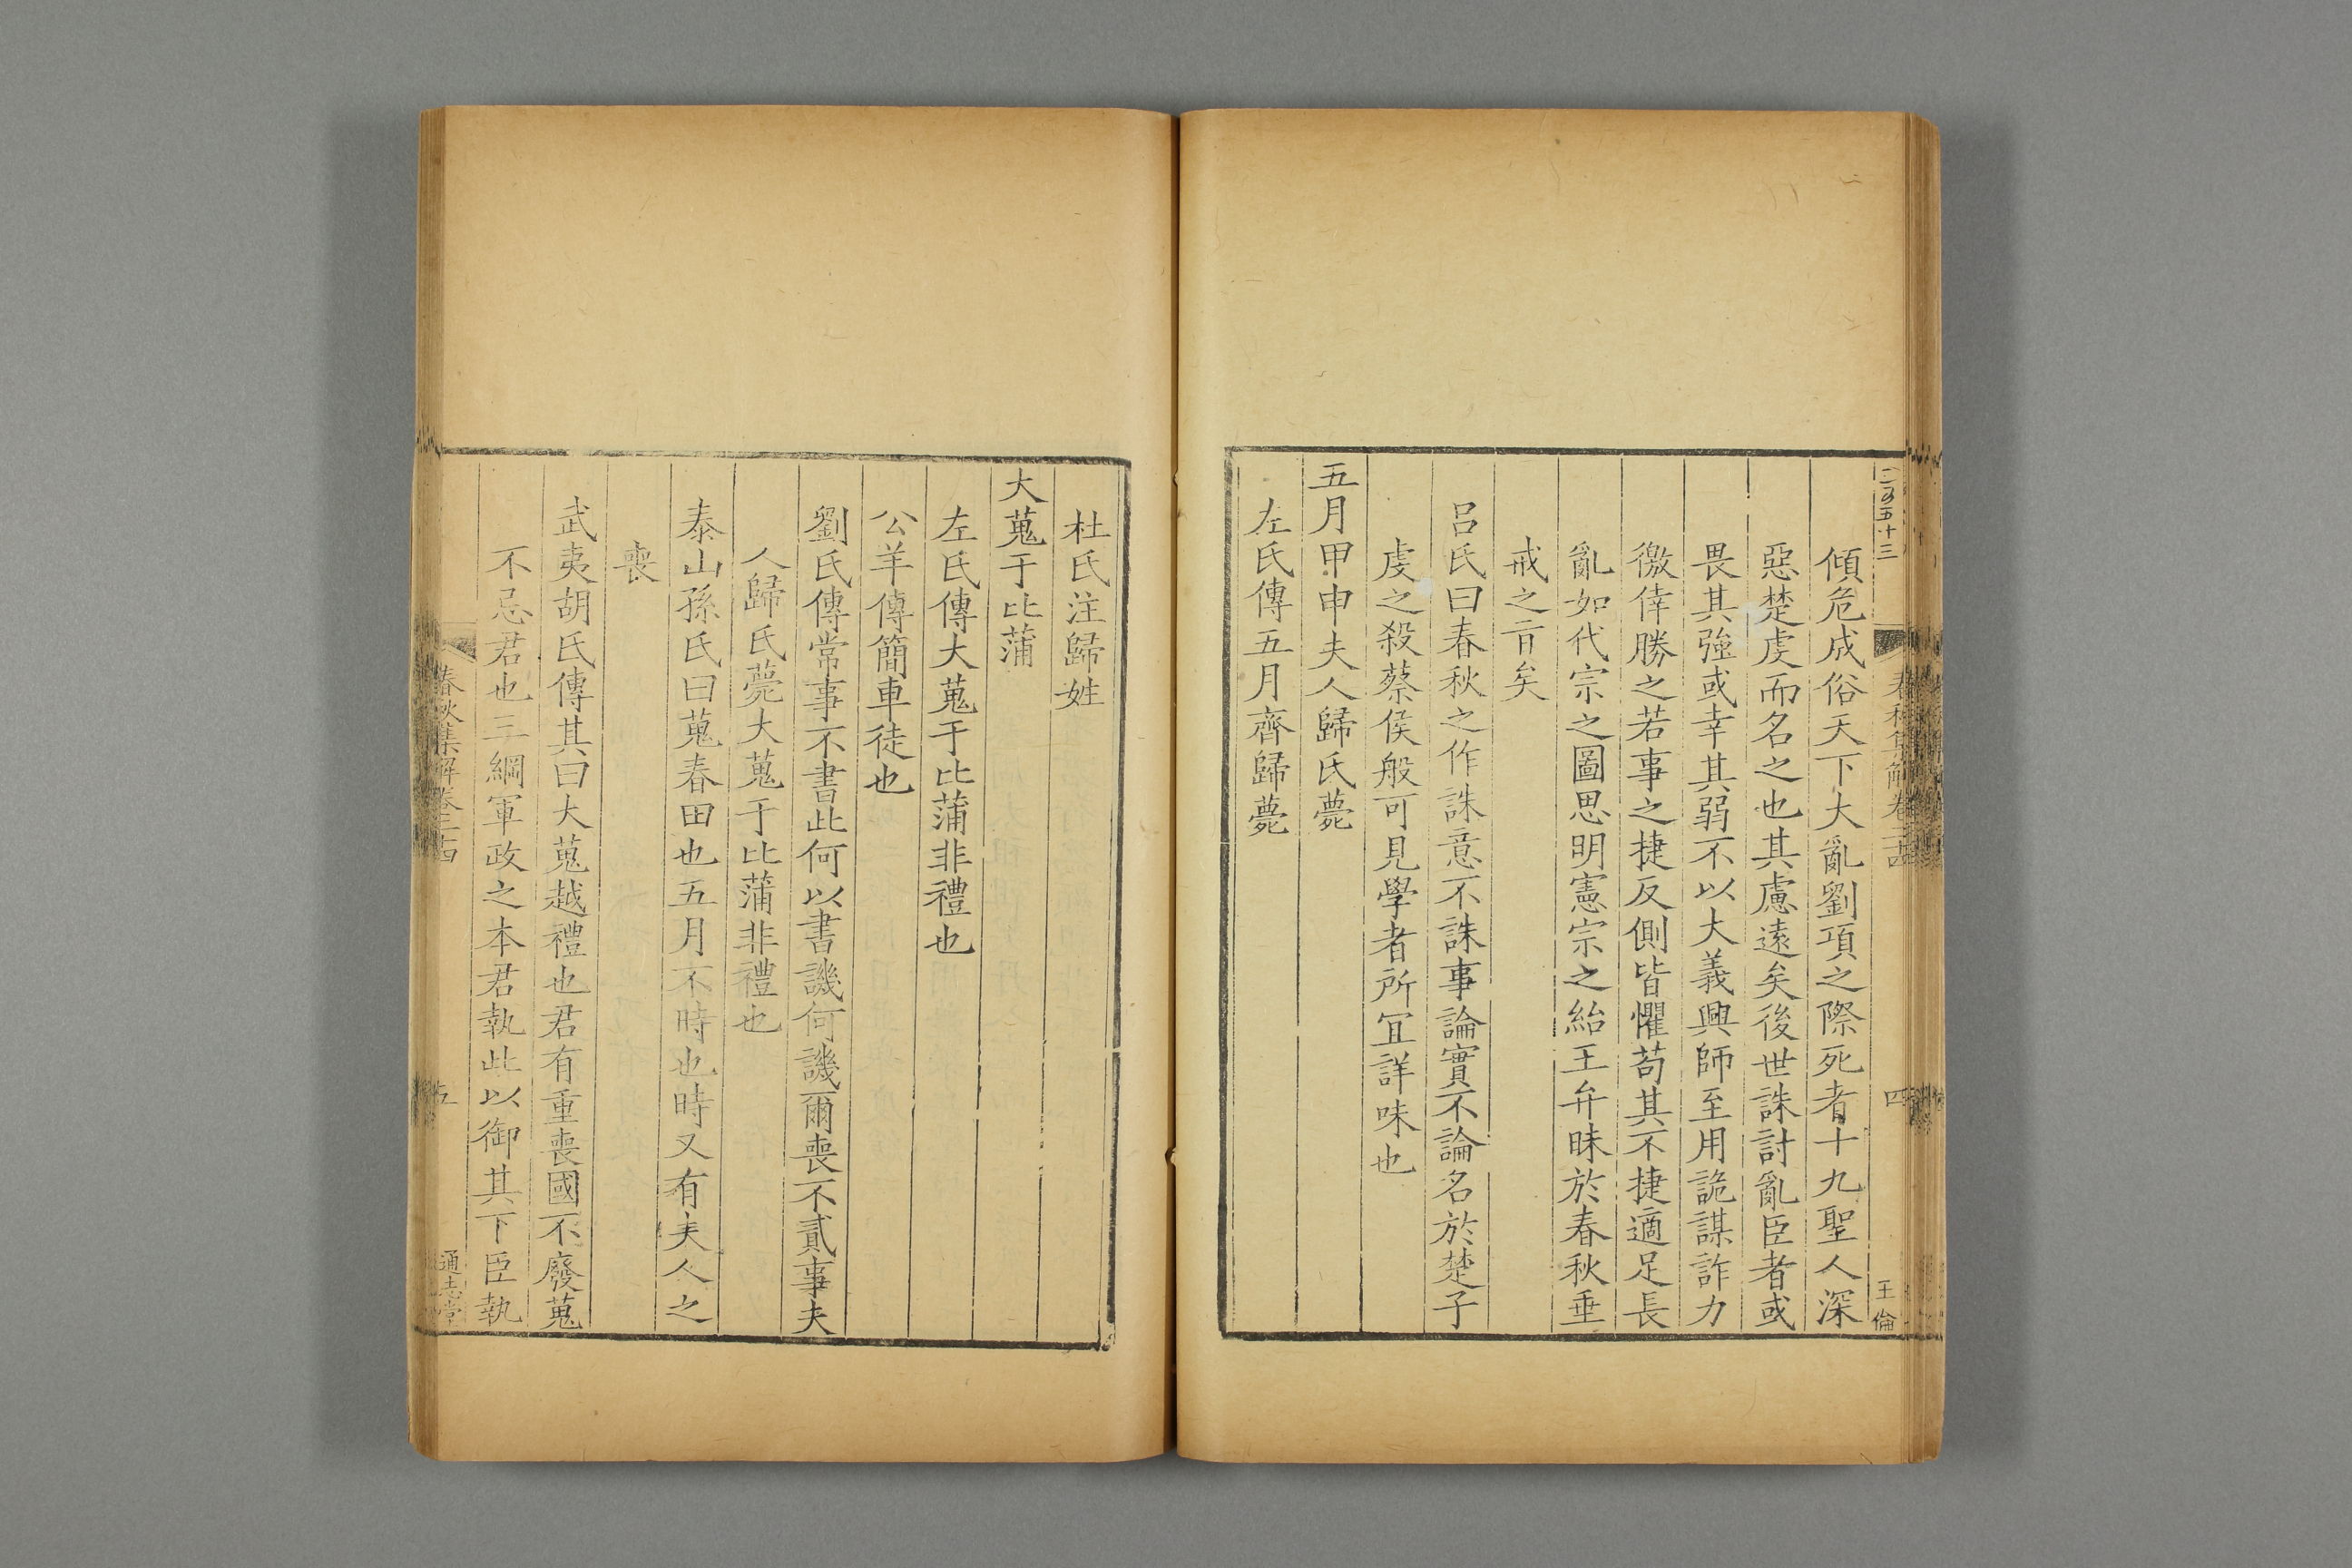 傾危成俗天下大亂劉項之際死者十九聖人深
惡楚虔而名之也其慮遠矣後世誅討亂臣者或
畏其強或幸其弱不以大義興師至用詭謀詐力
徼倖勝之若事之捷反側皆懼苟其不捷適足長
亂如代宗之圖思明憲宗之紿王弁昧於春秋垂
戒之旨矣
呂氏曰春秋之作誅意不誅事論實不論名於楚子
虔之殺蔡侯般可見學者所宜詳味也
五月甲申夫人歸氏薨
左氏傳五月齊歸薨
春秋集解卷二十四
四
王倫
杜氏注歸姓
大蒐于比蒲
左氏傳大蒐于比蒲非禮也
公羊傳簡車徒也
劉氏傳常事不書此何以書譏何譏爾喪不貳事夫
人歸氏薨大蒐于比蒲非禮也
泰山孫氏曰蒐春田也五月不時也時又有夫人之
喪
武夷胡氏傳其曰大蒐越禮也君有重喪國不廢蒐
不忌君也三綱軍政之本君執此以御其下臣執
春秋集解卷二十四
五
通志堂